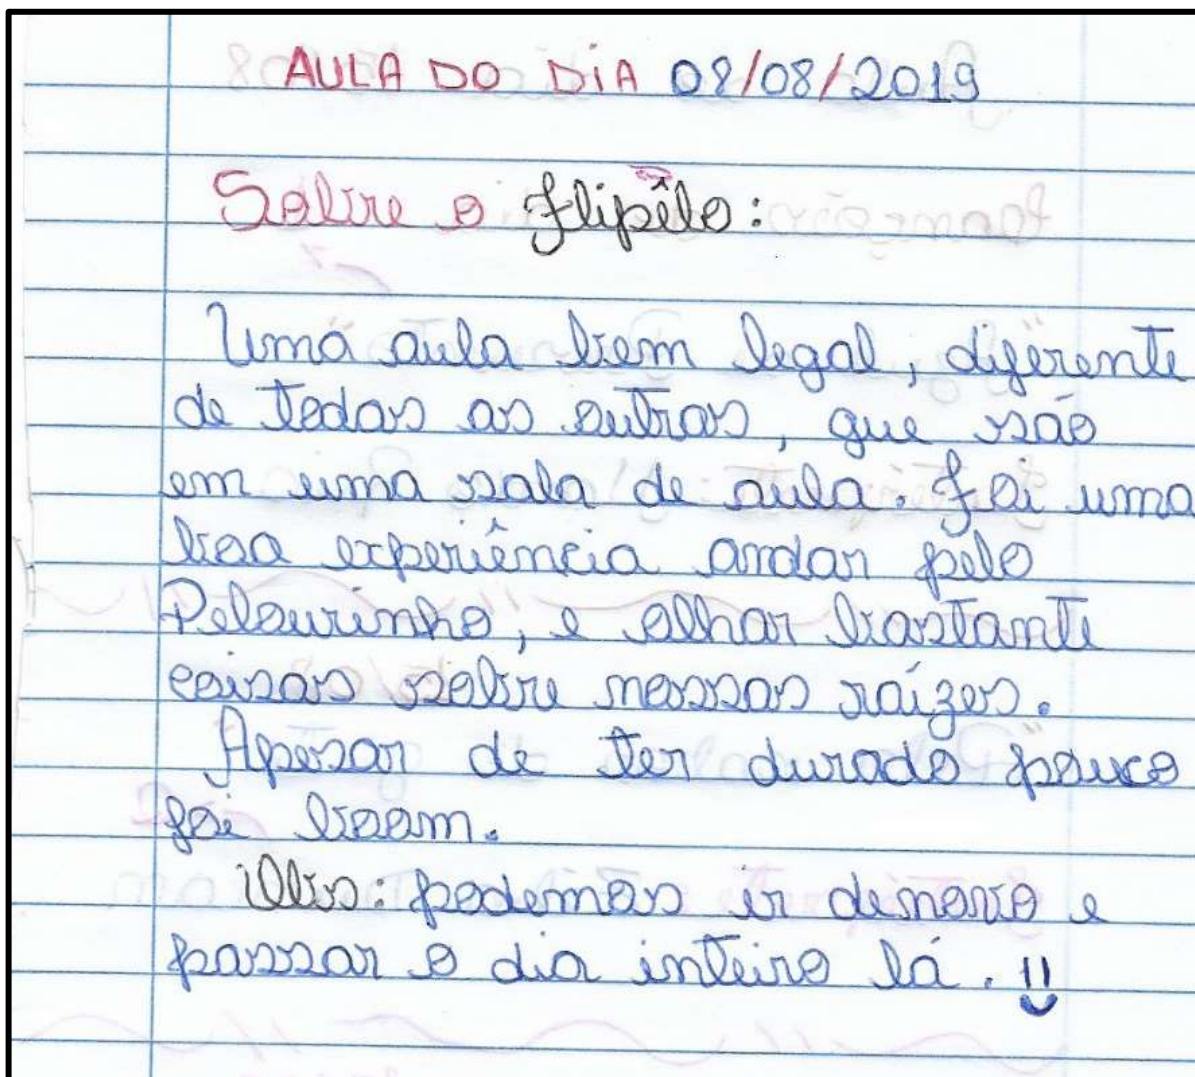 AULA DO DIA 08/08/2019
Sobre o Flipêlo:
Uma aula bem legal, diferente
de todas as outras, que são
em uma sala de aula. Foi uma
boa experiência andar pelo
Pelourinho, e olhar bastante
coisas sobre nossas raízes.
Apesar de ter durado pouco
foi boom.
Obs: podemos ir denovo e
passar o dia inteiro lá.